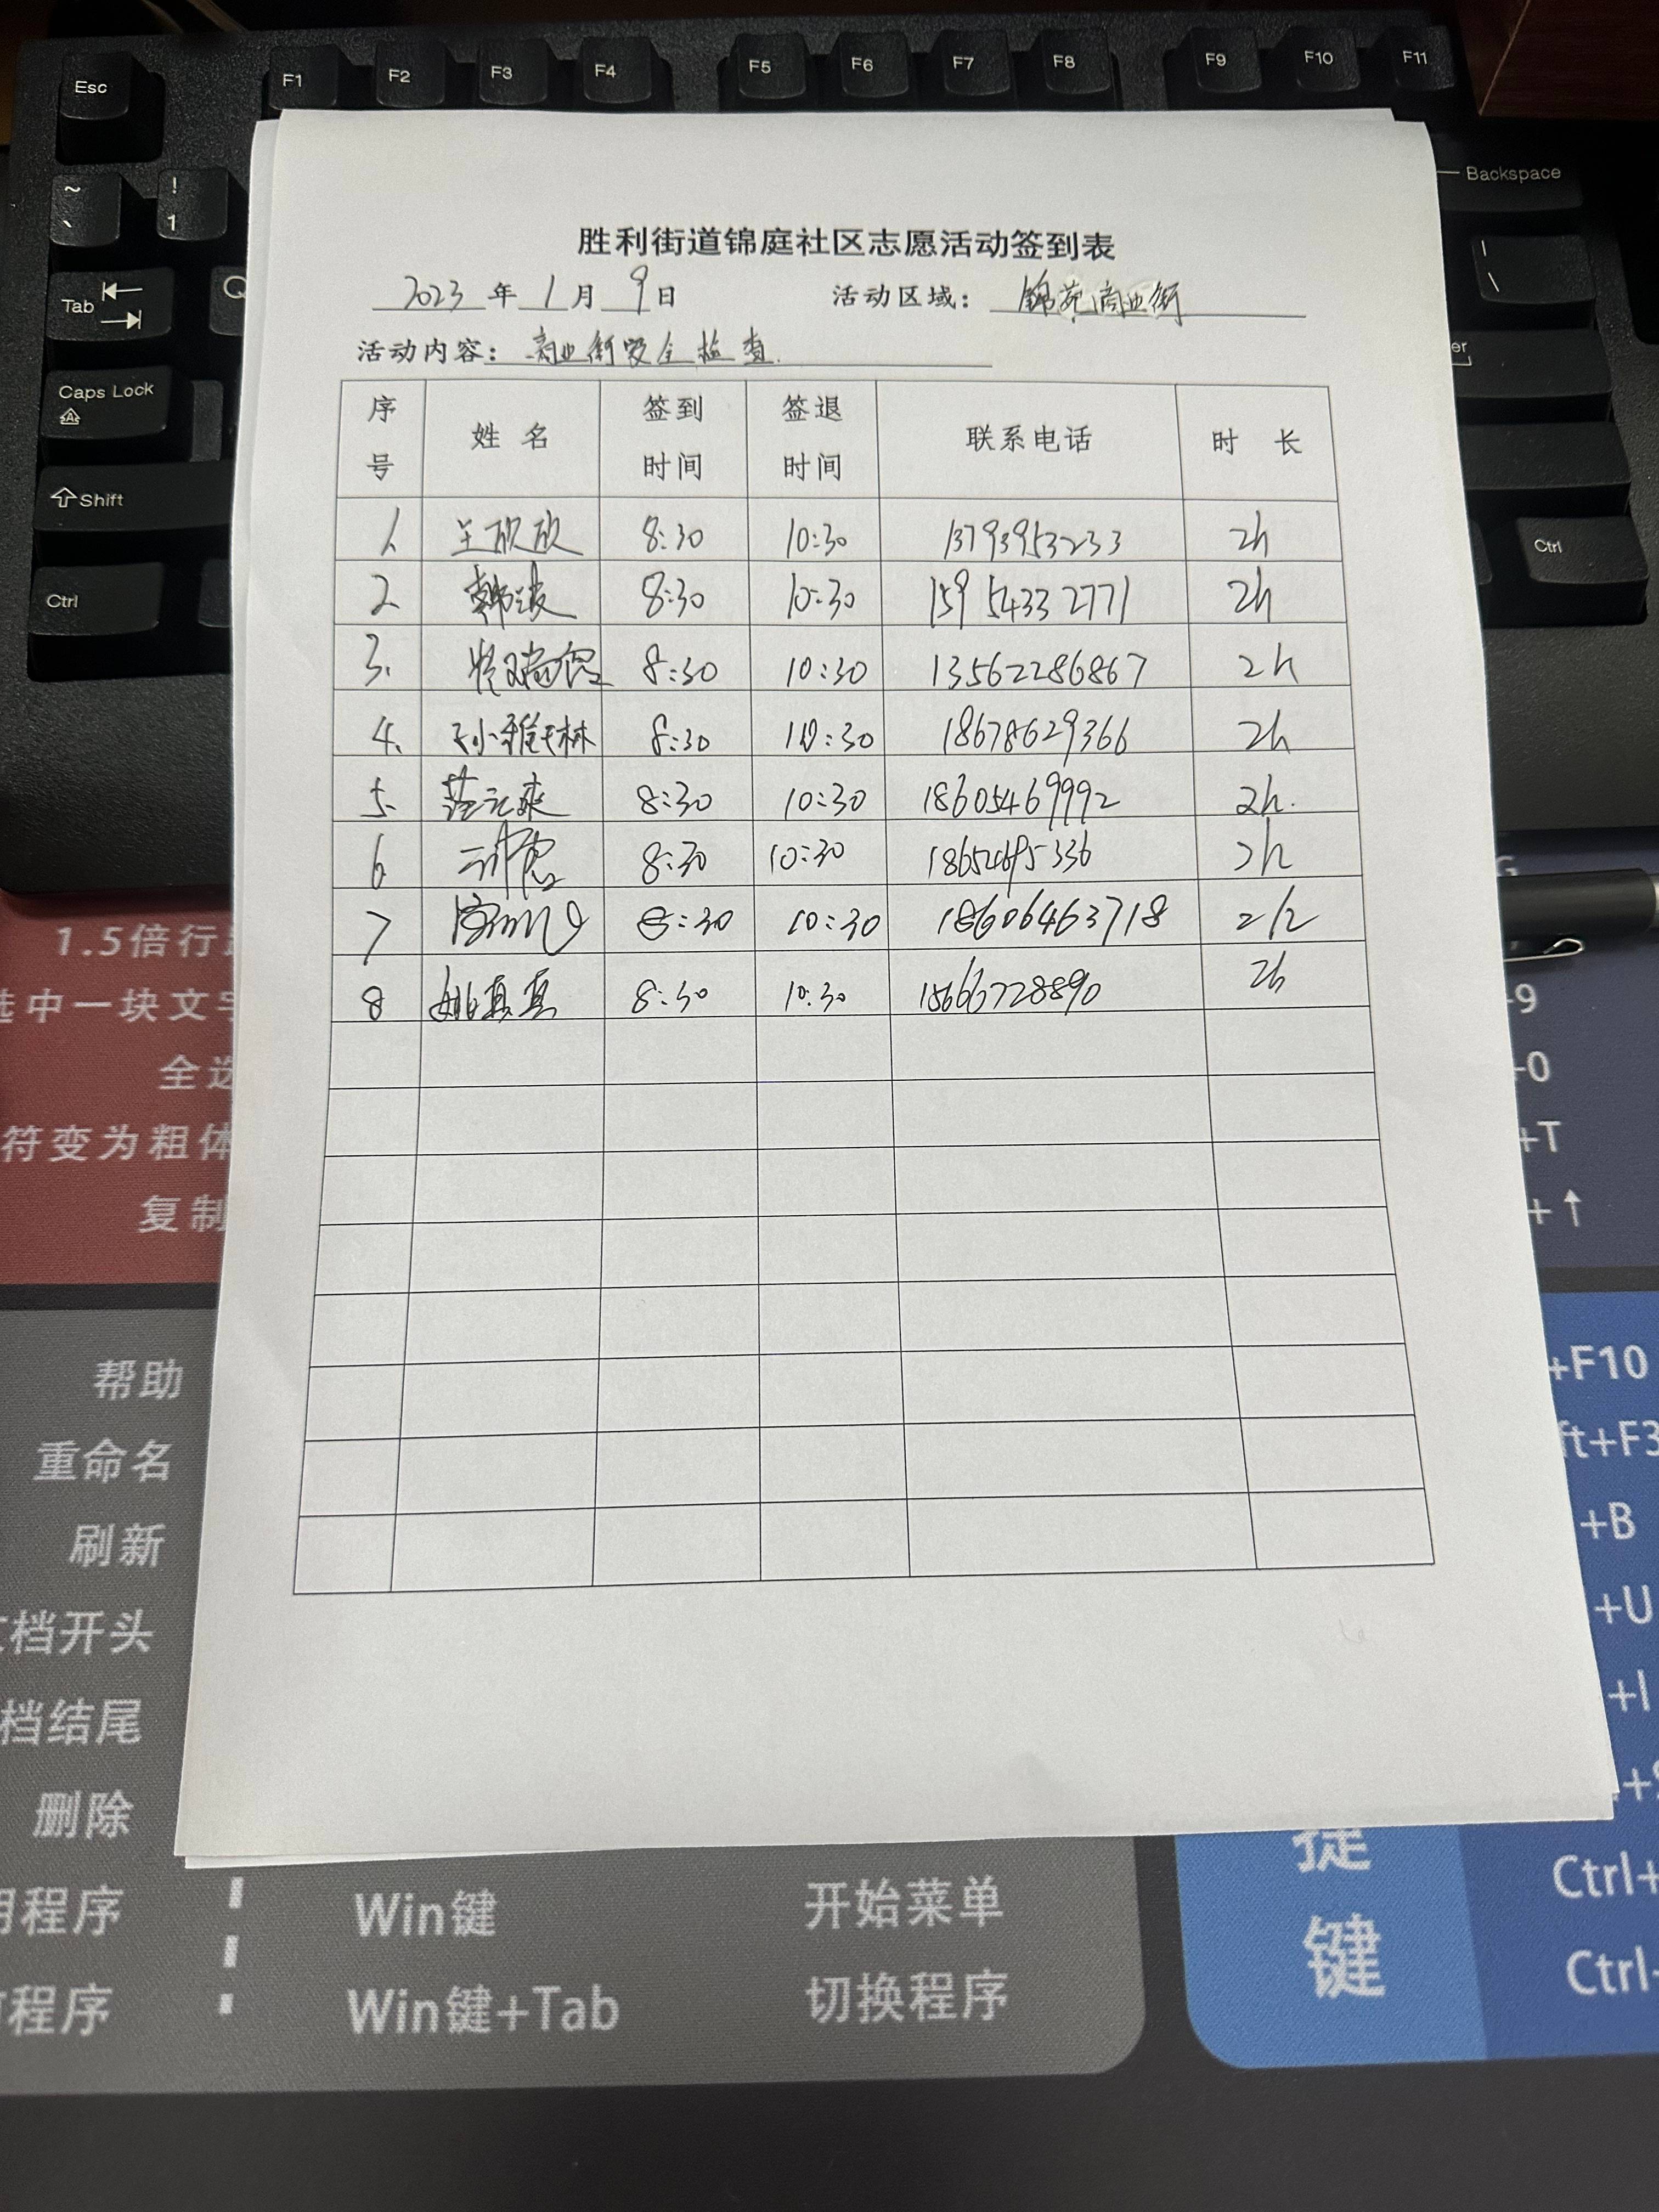 Esc F1 F2 F3 F4 F5 F6 F7 F8 F9 F10 F11
~ ! Backspace
、 1 | \
Tab Q
Caps Lock
Shift
Ctrl Ctrl
胜利街道锦庭社区志愿活动签到表
2023 年 1 月 9 日 活动区域： 锦苑商业街
活动内容： 商业街安全检查.
序号 姓 名 签到时间 签退时间 联系电话 时 长
1. 王欣欣 8:30 10:30 13793953233 2h
2. 韩波 8:30 10:30 15954332771 2h
3. 8:30 10:30 13562286867 2h
4. 孙雅林 8:30 10:30 18678629366 2h
5. 8:30 10:30 18605469992 2h.
6 8:30 10:30 18654695336 2h
7 8:30 10:30 18606463718 2h
8 姚真真 8:30 10:30 15663728890 2h
1.5倍行
选中一块文字 +9
全选 +0
符变为粗体 +T
复制 +↑
帮助 +F10
重命名 ft+F3
刷新 +B
文档开头 +U
档结尾 +I
删除
捷键
用程序 Win键 开始菜单 Ctrl+
程序 Win键+Tab 切换程序 Ctrl+